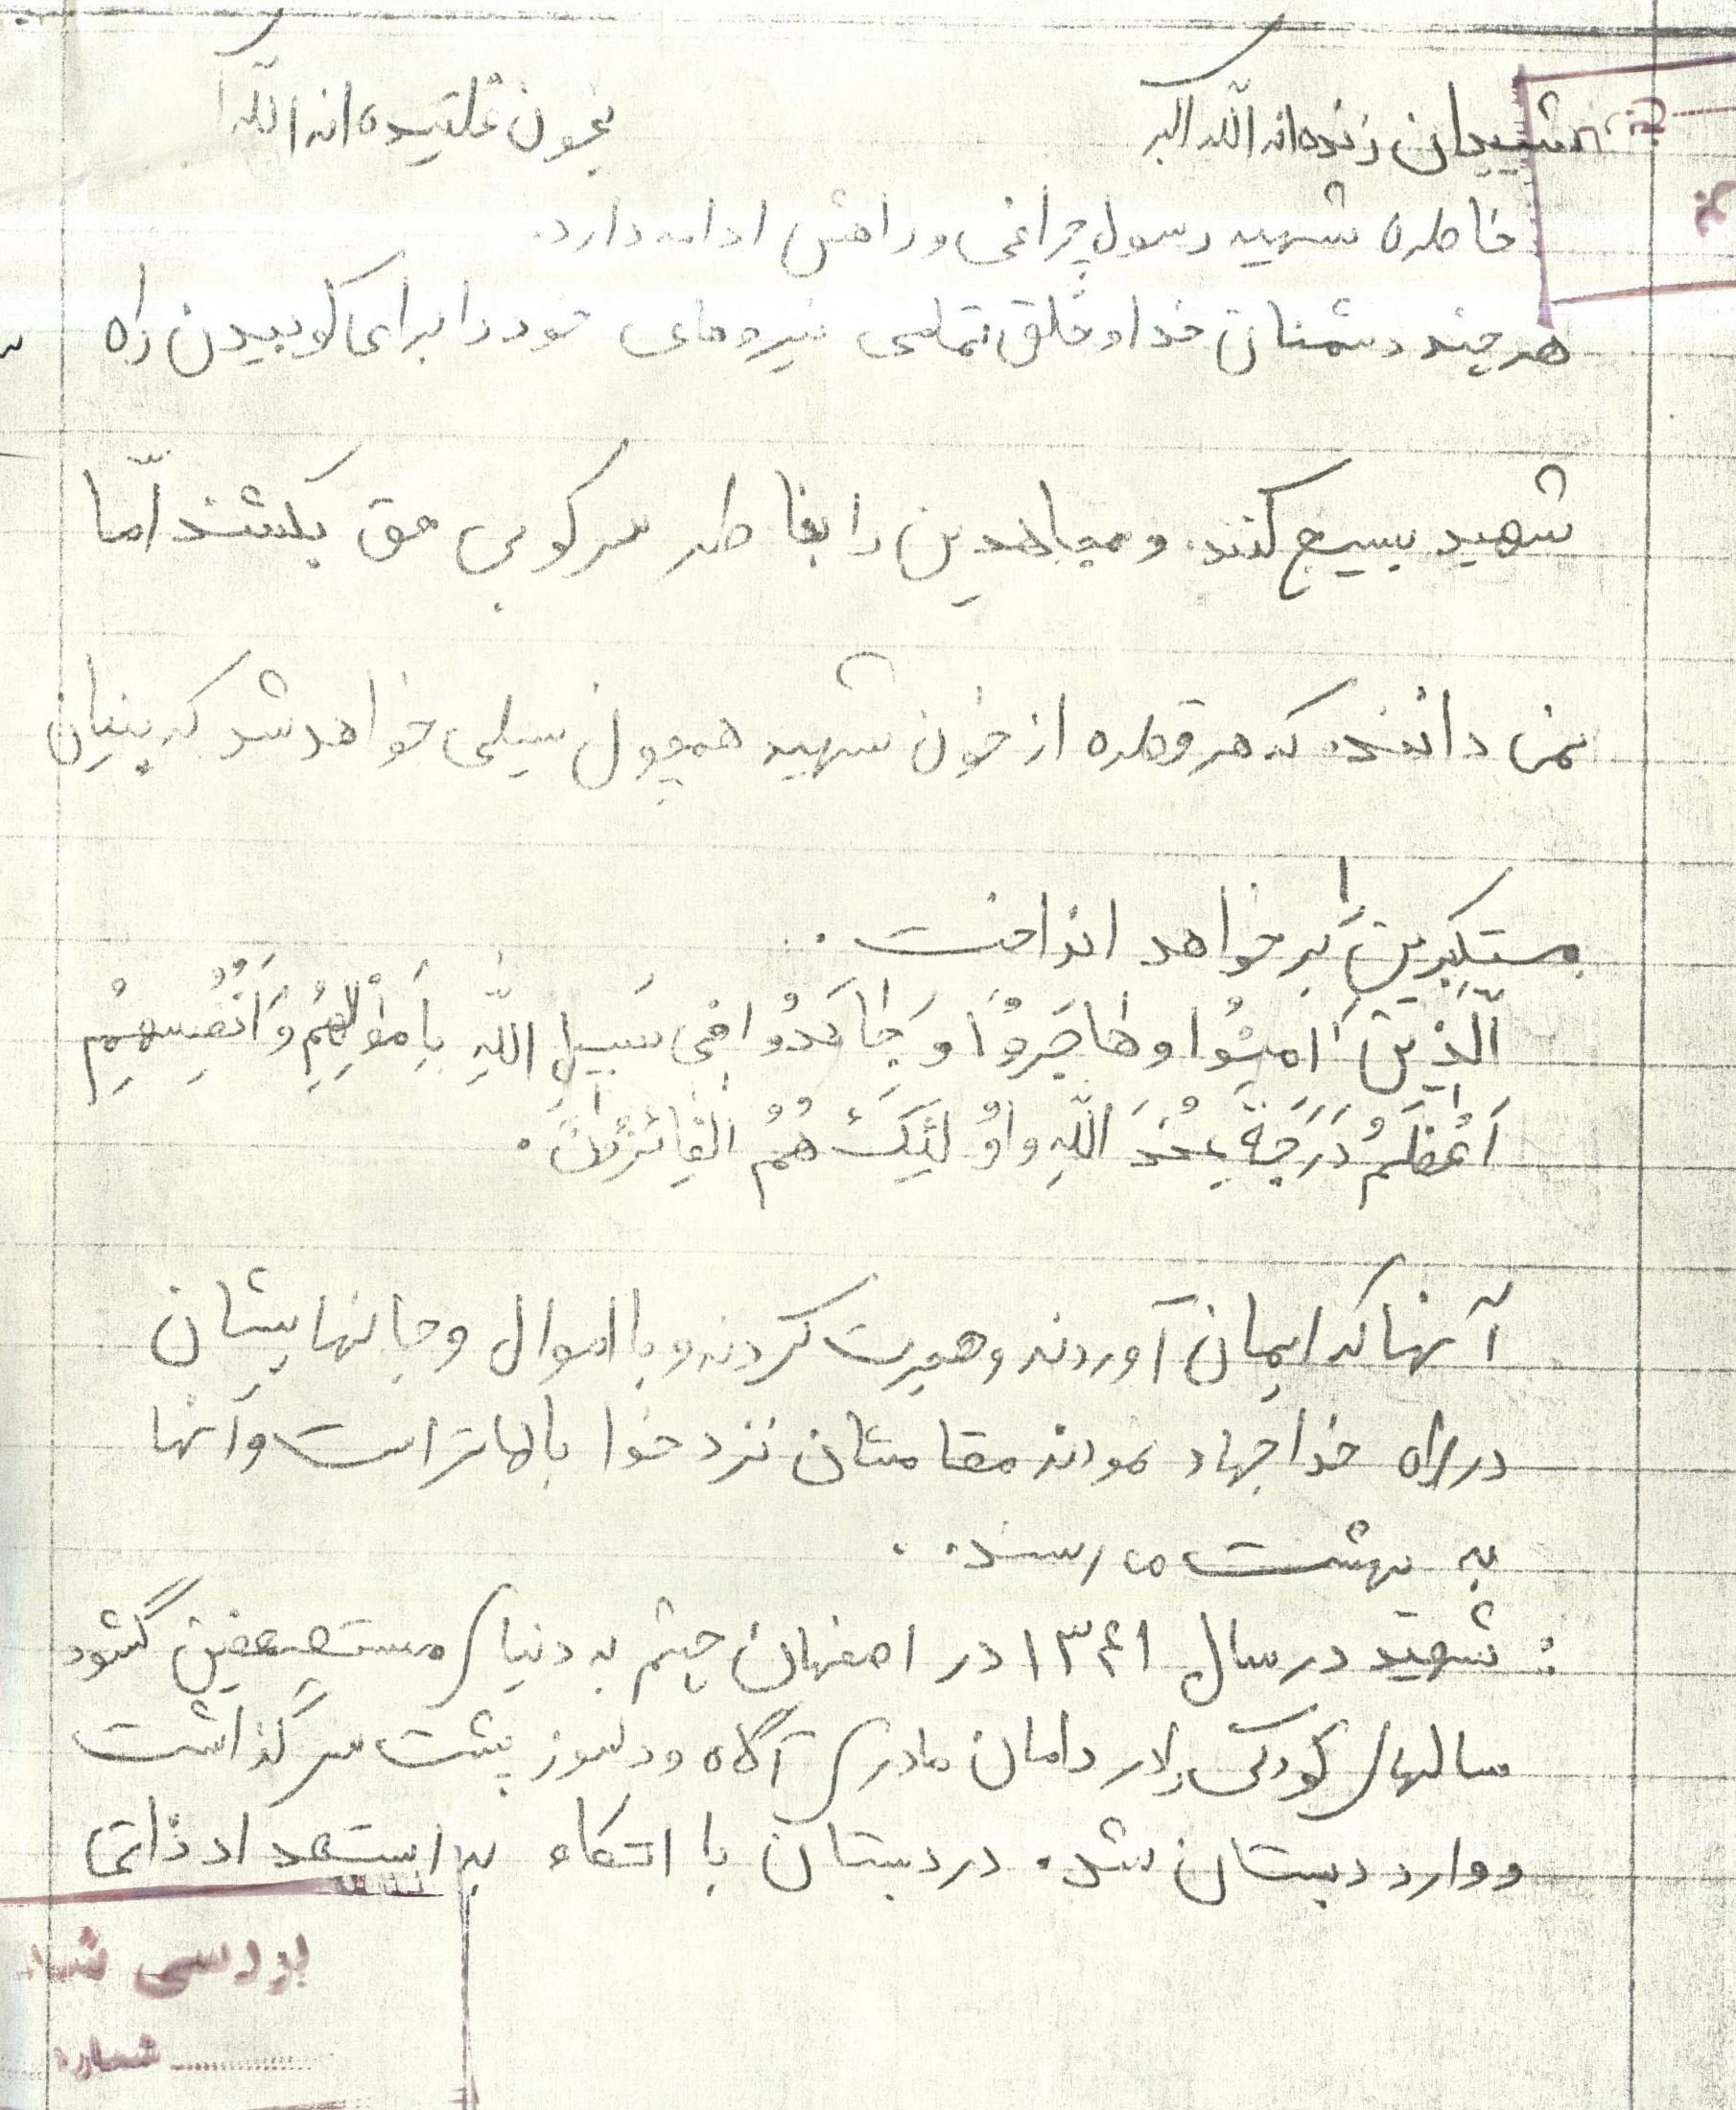 شهیدان زنده‌اند الله اکبر بخون غلتیده‌اند الله ا
خاطره شهید رسول چراغی و راهش ادامه دارد.
هر چند دشمنان خدا و خلق تمامی نیروهای خود را برای کوبیدن راه
شهید بسیج کنند. و مجاهدین را بخاطر سرکوبی حق بکشند امّا
نمی دانند. که هر قطره از خون شهید همچون سیلی خواهد شد که بنیان
مستکبرین را بر خواهد انداخت.
اَلَّذِینَ آمَنُوا وهَاجَرُوا وَ جَاهَدُوا فِی سَبیلِ اللّهِ بِاَموْالِهِمُ وَ اَنْفُسِهِمْ
اَعْظَمُ دَرَجَةً عِنْدَ اللّهِ و اوُلئِکَ هُمُ الْفائِزوُنَ.
آنها که ایمان آوردند و هجرت کردند و با اموال و جانهایشان
در راه خدا جهاد نمودند مقامشان نزد خدا بالاتر است و آنها
به بهشت می رسند..
: شهید در سال ۱۳۴۱ در اصفهان چشم به دنیای مستضعفین گشود
سالهای کودکی را در دامان مادری آگاه و دلسوز پشت سر گذاشت
و وارد دبستان شد. در دبستان با اتکاء به استعداد ذاتی
بررسی شد
شماره